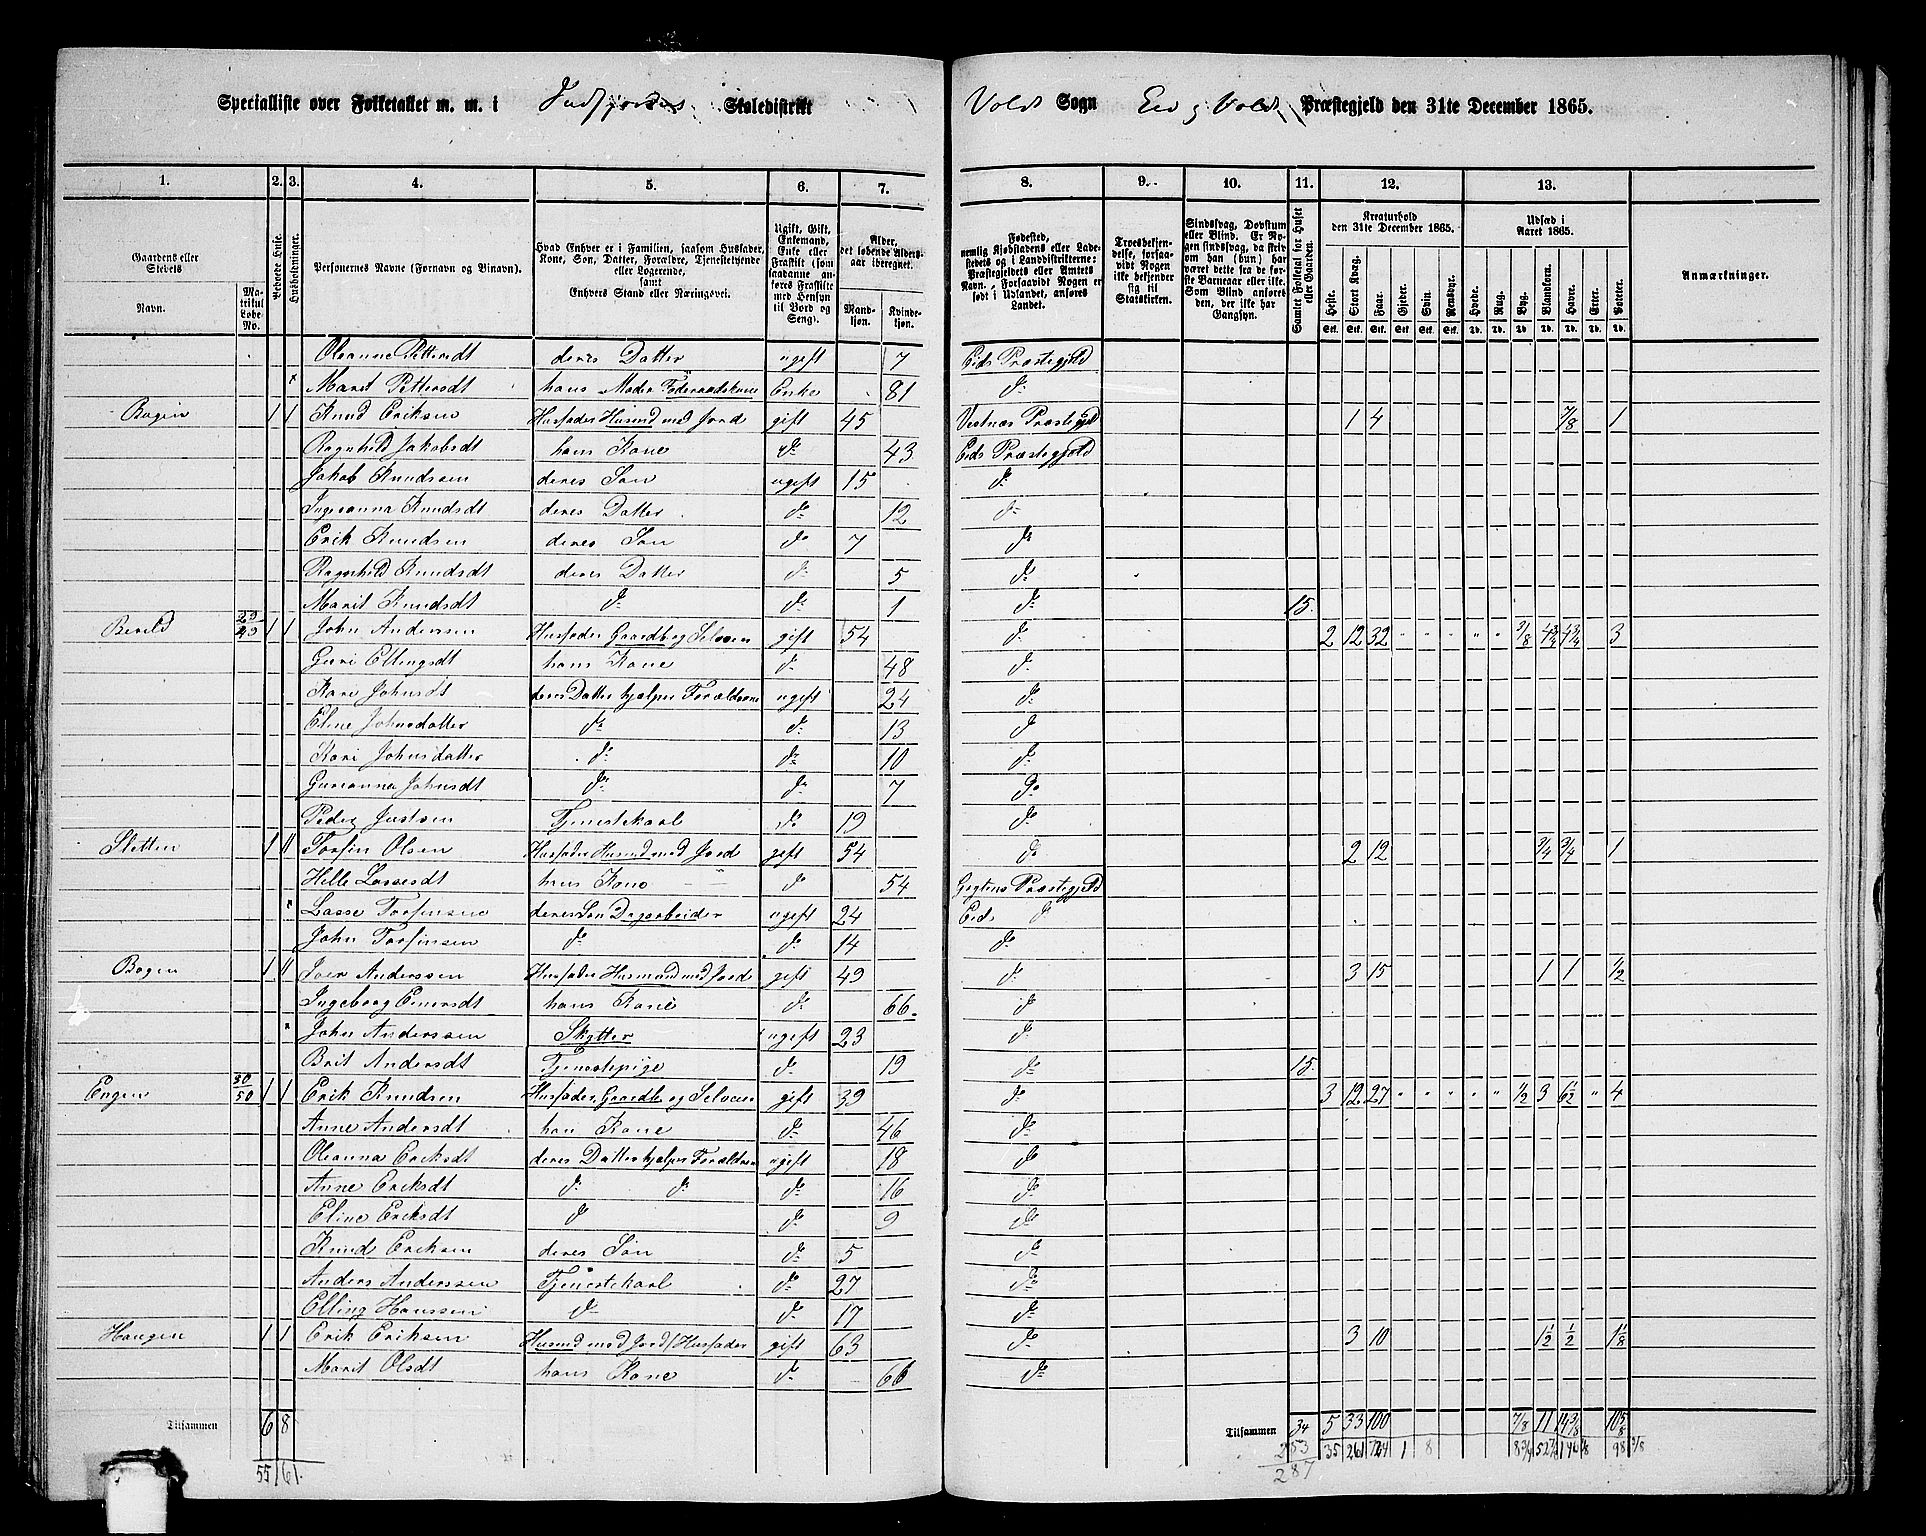 Specialliste over Folketallet m. m. i Indfjordens Skoledistrikt Vold Sogn Eid og Vold Præstegjeld den 31te December 1865.
1. 2. 3. 4. 5. 6. 7. 8. 9. 10. 11. 12. 13.
Gaardens eller Stedets Navn. Matrikul Løbe-No. Beboede Huse. Husholdninger.
Personernes Navne (Fornavn og Tilnavn).
Hvad Enhver er i Familien, saasom Husfader, Kone, Søn, Datter, Forældre, Tjenestetyende eller Logerende, samt Enhvers Stand eller Næringsvei.
Ugift, Gift, Enkemand, Enke eller Fraskilt (som saadanne anføres Fraskilte med Hensyn til Bord og Seng).
Alder, det løbende Aldersaar iberegnet. Mandkjøn. Kvindekjøn.
Fødested, nemlig Kjøbstadens eller Ladestedets og i Landdistrikterne: Præstegjeldets eller Amtets Navn. Forsaavidt Nogen er født i Udlandet, anføres Landet.
Troesbekjendelse, forsaavidt Nogen ikke bekjender sig til Statskirken.
Sindssvag, Døvstum eller Blind. Er Nogen sindssvag, da skrives om han (hun) har været dette fra de første Barneaar eller ikke. Som Blind anføres den, der ikke har Gangsyn.
Samlet Folketal for Huset eller Gaarden.
Kreaturhold den 31te December 1865. Heste. Stort Kvæg. Faar. Gjeder. Svin. Rensdyr.
Udsæd i Aaret 1865. Hvede. Rug. Byg. Blandkorn. Havre. Erter. Poteter.
Anmærkninger.
Oleanne Pettersdt deres Datter ugift 7 Eids Præstegjeld
× Marit Pettersdt hans Moder Føderaadskone Enke 81 do
Bogen 1 1 Knud Eriksen Husfader Husmd med Jord gift 45 Vestnæs Præstegjeld 1 4 7/8 1
Ragnhild Jakobsdt hans Kone do 43 Eids Præstegjeld
Jakob Knudssen deres Søn ugift 15 do
Ingeranna Knudsdt deres Datter do 12 do
Erik Knudsen deres Søn do 7 do
Ragnhild Knudsdt deres Datter do 5 do
Marit Knudsdt do do 1 do 15.
29/49 1 1 John Anderssen Husfader Gaardb og Selveier gift 54 do 2 12 32 " " " " " 3/8 4 3/4 4 3/4 " 3
Guri Ellingsdt hans Kone do 48 do
Kari Johnsdt deres Datter hjælper Forældrene ugift 24 do
Eline Johnsdatter do do 13 do
Kari Johnsdatter do do 10 do
Gurianna Johnsdt do do 7 do
Peder Justsen Tjenestekarl do 19 do
Sletten 1 1 Torfin Olsen Husfader Husmd med Jord gift 54 do 2 12 3/4 3/4 1
Helle Lassesdt hans Kone do 54 Grytens Præstegjeld
× Lasse Torfinsen deres Søn Dagarbeider ugift 24 Eids do
John Torfinsen do do 14 do
Bogen 1 1 Iver Anderssen Husfader Husmand med Jord gift 49 do 3 15 1 1 1/2
Ingeborg Einersdt hans Kone do 66 do
× John Anderssen Skytter ugift 23 do
Brit Andersdt Tjenestepige do 19 do 15.
Engen 30/50 1 1 Erik Knudsen Husfader, Gaardb og Selveier gift 39 do 3 12 27 " " " " " 1/2 3 6 1/2 " 4
Anne Andersdt hans Kone do 46 do
Oleanna Eriksdt deres Datter hjælper Forældrene ugift 18 do
Anne Eriksdt do do do 16 do
Eline Eriksdt do do 9 do
Knud Eriksen deres Søn do 5 do
Anders Anderssen Tjenestekarl do 27 do
Elling Hanssen do do 17 do
Haugen 1 1 Erik Eriksen Husmd med Jord / Husfader gift 63 do 3 10 1 1/2 1/2 1 1/8
Marit Olsdt hans Kone do 66 do
Tilsammen 6 8 Tilsammen 34 5 33 100 7/8 11 14 3/8 10 5/8
253 35 261 724 1 8
55 61 287